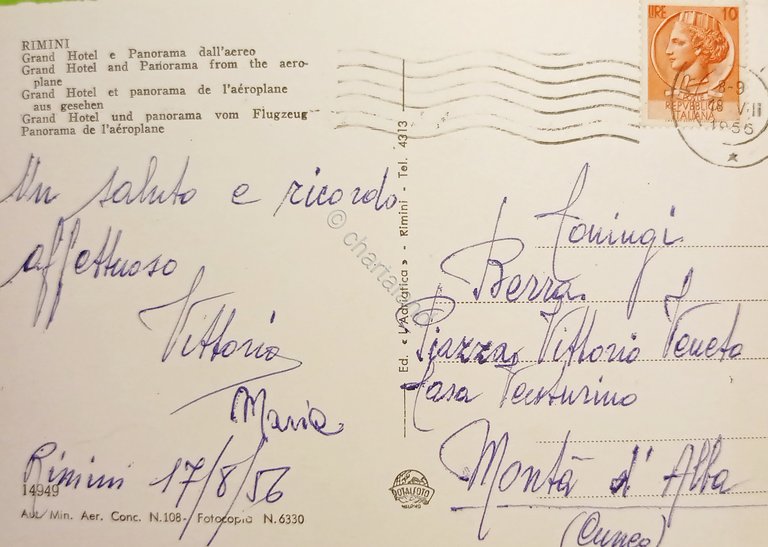 RIMINI
Grand Hotel e Panorama dall'aereo
Grand Hotel and Panorama from the aero-
plane
Grand Hotel et panorama de l'aéroplane
aus gesehen
Grand Hotel und panorama vom Flugzeug
Panorama de l'aéroplane
Un saluto e ricordo
affettuoso
Vittorio
Maria
Rimini 17/8/56
14949
Aut. Min. Aer. Conc. N.108 - Fotocopia N.6330
Ed. « L'Adriatica » - Rimini - Tel. 4313
LIRE 10
REPVBBLICA
ITALIANA
8-9
18 VIII
1956
Coniugi
Berra
Piazza Vittorio Veneto
Casa Venturino
Montà d'Alba
(Cuneo)
ROTALFOTO
© chartaland